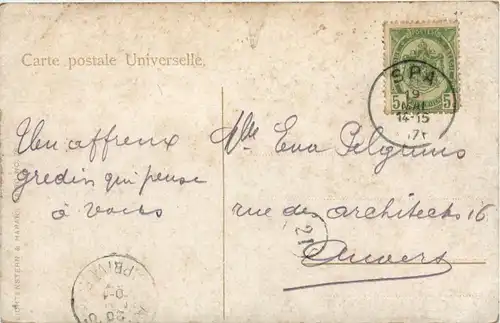 Carte postale Universelle.
SPA
19
MAI
14-15
5 5
Un affreux
gredin qui pense
à vous
Mlle Eva Pelgrims
rue des architects 16
Anvers
21